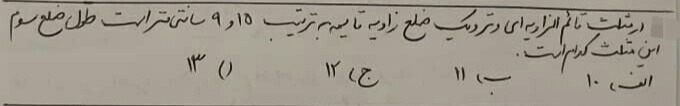 در مثلث قائم الزاویه ای وتر و یک ضلع زاویه قایمه به ترتیب ۱۵ و ۹ سانتی متر است طول ضلع سوم
این مثلث کدام است.
الف) ۱۰ ب) ۱۱ ج) ۱۲ د) ۱۳